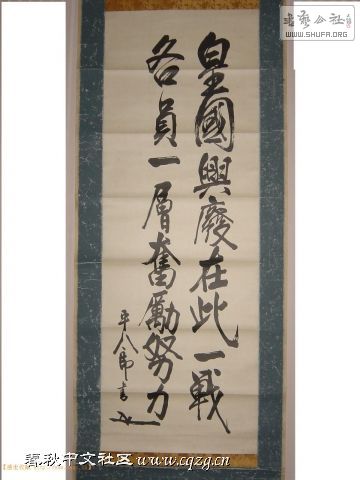 皇國興廢在此一戰
各員一層奮勵努力
平八郎書
书艺公社
WWW.SHUFA.ORG
春秋中文社区 www.cqzg.cn